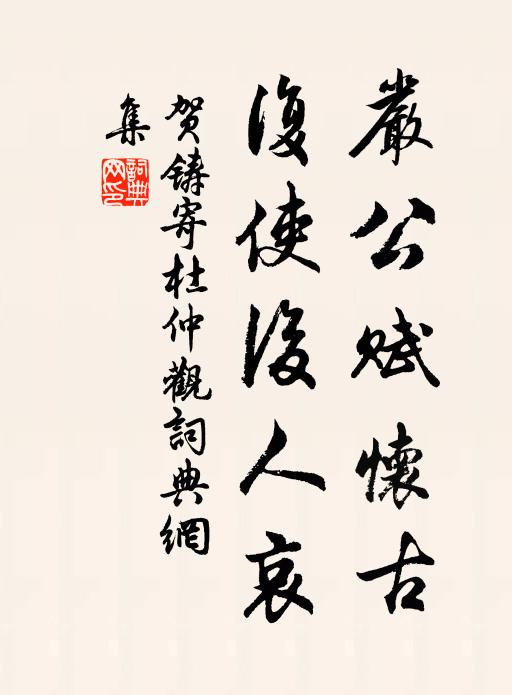 嚴公賦懷古
復使後人哀
賀鑄寄杜仲觀詞典網
集
詞典網印